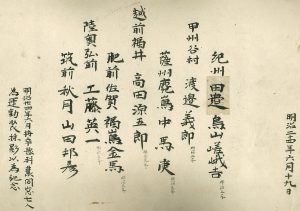 明治二十四年六月十九日
紀州田邊 鳥山嵯峨吉
甲州谷村 渡邊義郎
薩州鹿嶌 中馬庚
越前福井 高田源五郎
肥前佐賀 福嶌金馬
陸奥弘前 工藤英一
筑前秋月 山田邦彦
明治廿四年六月
同志七人
為運動
撮影以為紀念